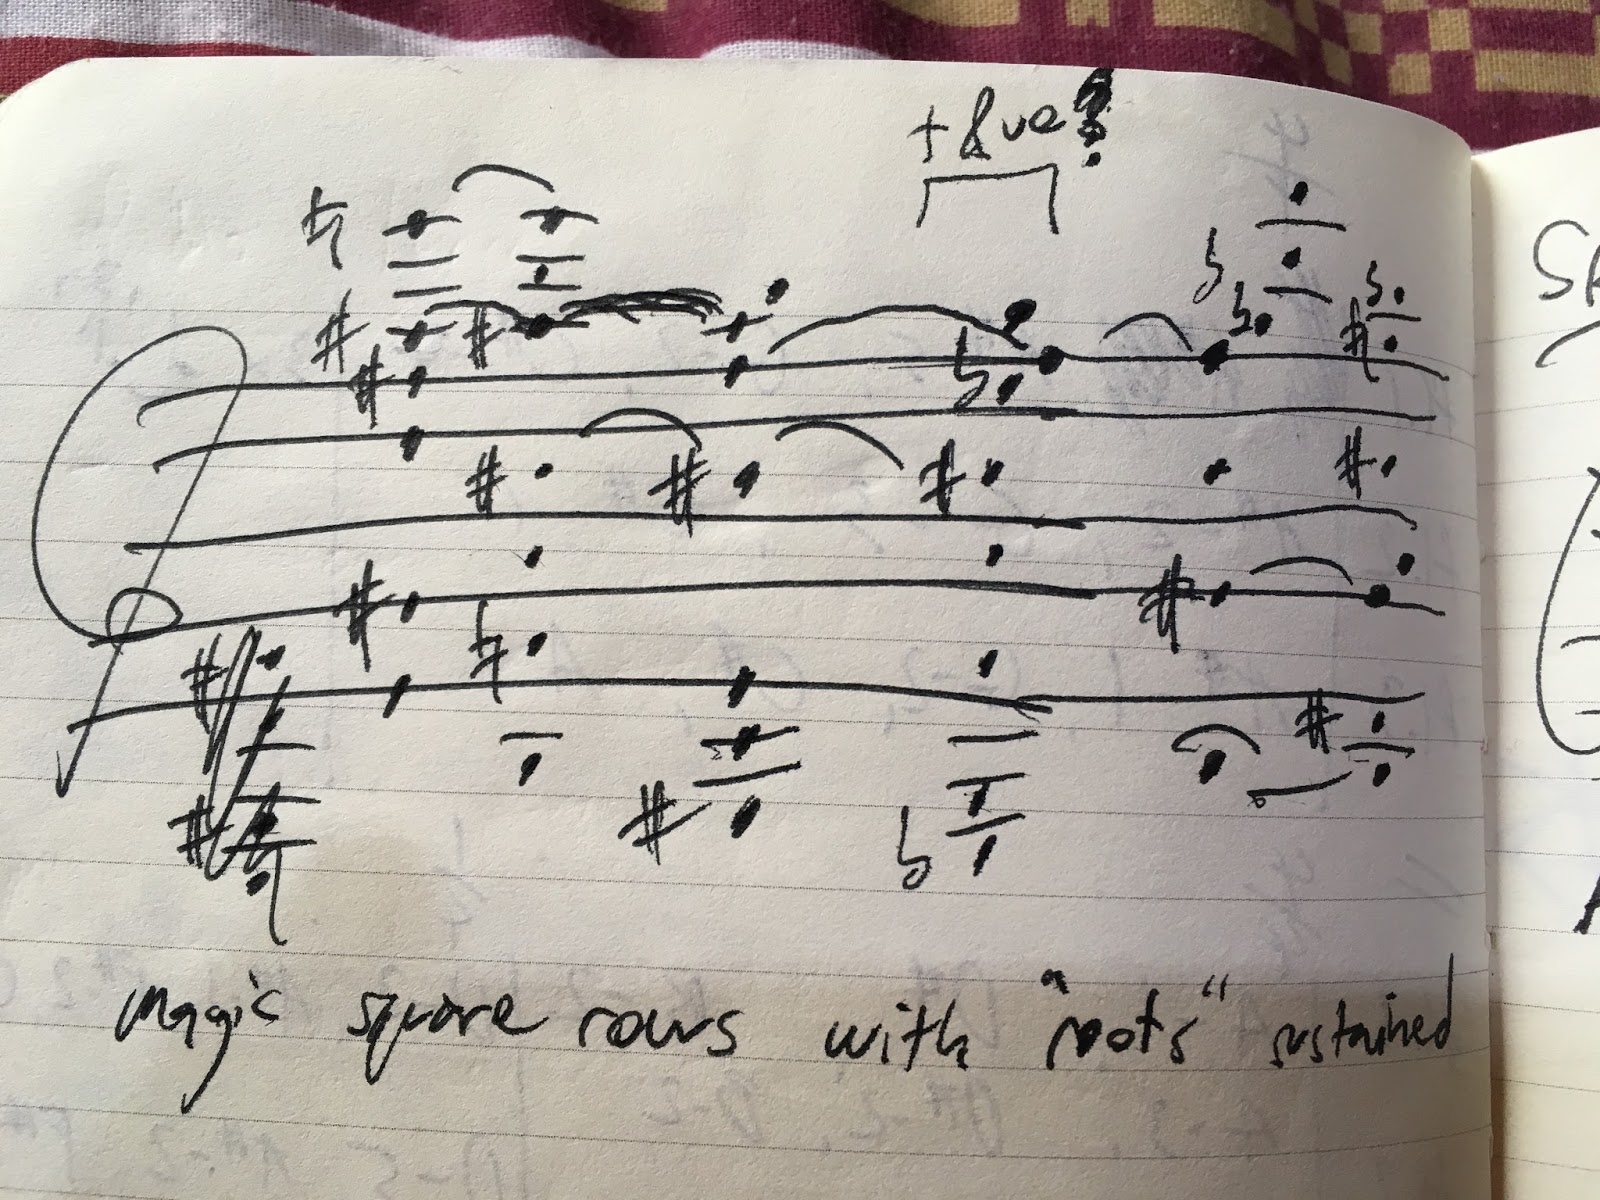 + 8ve?
magic square rows with "roots" sustained